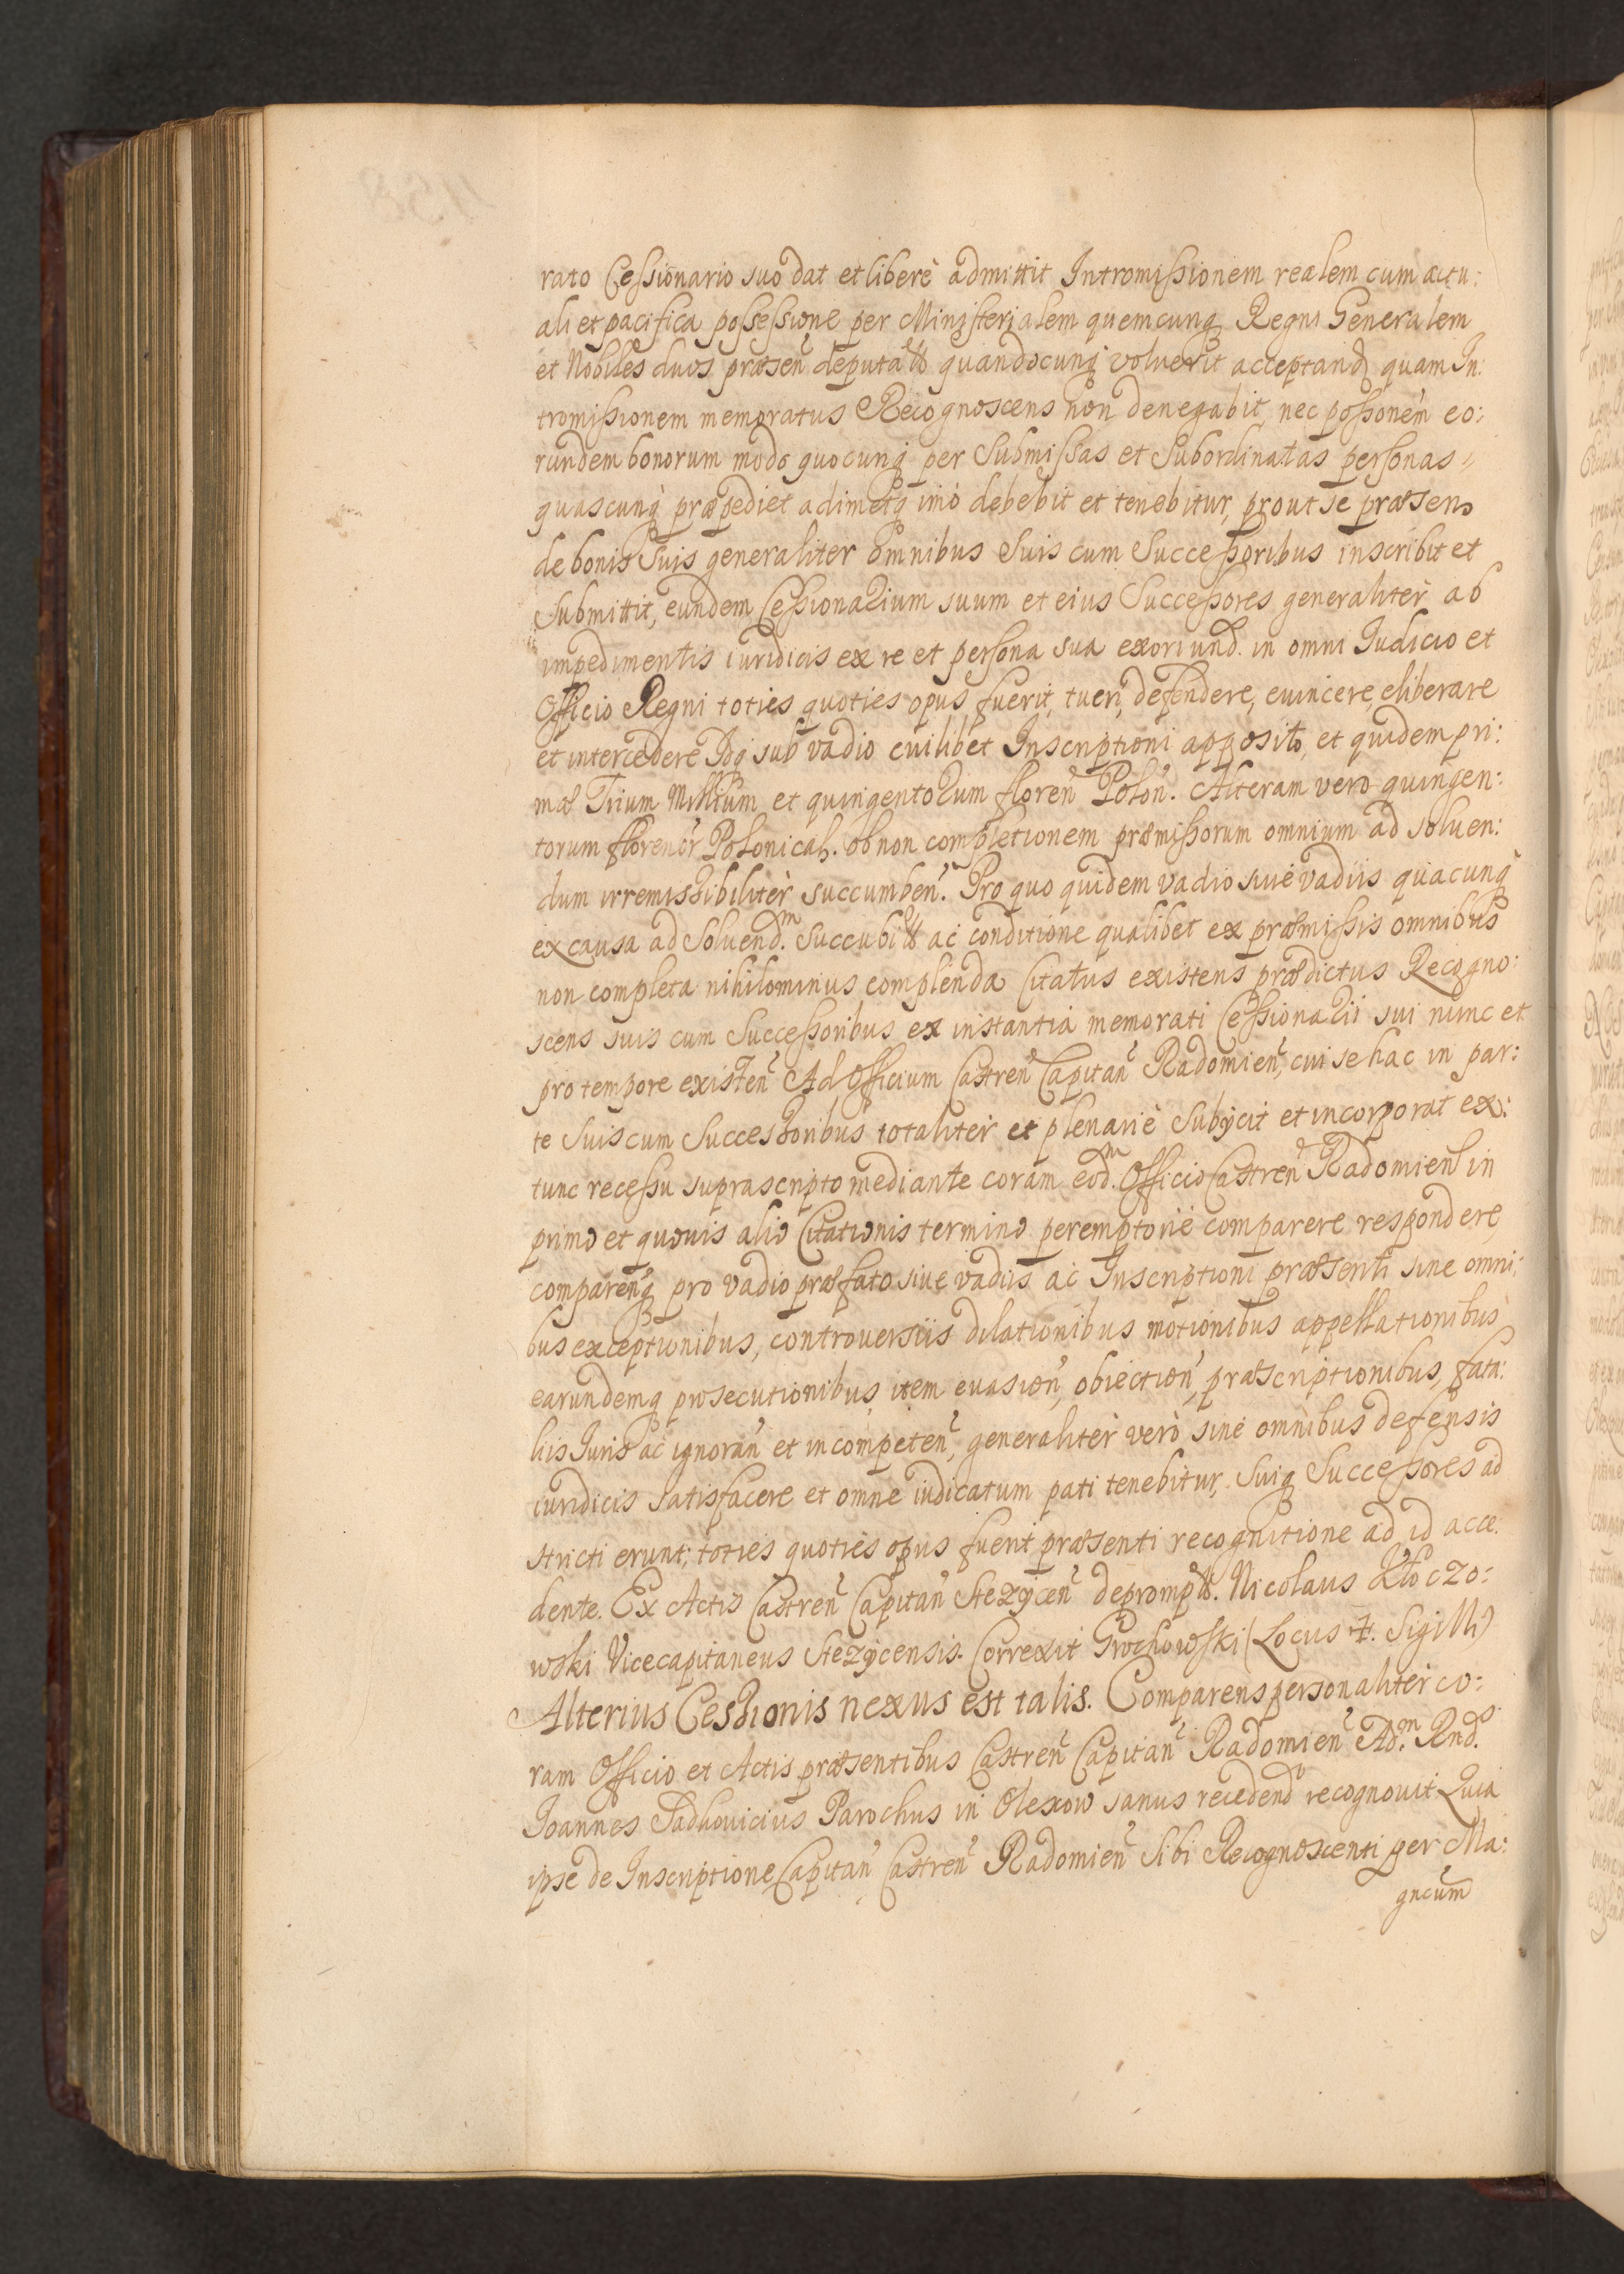 rato Cessionario suo dat et liberè admittit Intromissionem realem cum actu:
ali et pacifica possessione per Ministerialem quemcunq Regni Generalem
et Nobiles duos præsen̄ deputa quandocunq voluerit acceptand quam In:
tromissionem memoratus Recognoscens non denegabit, nec possonem eo:
rundem bonorum modo quocunq per Submissas et Subordinatas personas
quascunq præpediet adimetq imò debebit et tenebitur, prout se præsen
de bonis Suis generaliter omnibus Suis cum Successoribus inscribit et
Submittit, eundem Cessionarium suum et eius Successores generaliter ab
impedimentis iuridicis ex re et persona sua exoriund. in omni Iudicio et
Officio Regni toties quoties opus fuerit, tueri, defendere, euincere, eliberare
et intercedere Idq sub vadio cuilibet Inscriptioni apposito, et quidem pri:
mæ Trium Millium et quingentorum floren̄ Polon̄. Alteram vero quingen:
torum florenor Polonical. ob non completionem præmissorum omnium ad soluen:
dum irremissibiliter succumben̄. Pro quo quidem vadio siue vadiis quacunq
ex causa ad Soluend.m Succubi ac conditione qualibet ex præmissis omnibus
non completa nihilominus complenda Citatus existens prædictus Recogno:
scens suis cum Successoribus ex instantia memorati Cessionarii sui nunc et
pro tempore existen̄ Ad Officium Castren̄ Capitan̄ Radomien̄, cui se hac in par:
te Suis cum Successoribus totaliter et plenariè Subijcit et incorporat ex:
tunc recessu suprascripto mediante coram eod.m Officio Castren̄ Radomien̄ in
primo et quouis alio Citationis termino peremptoriè comparere respondere,
comparenq pro vadio præfato siue vadiis ac Inscriptioni præsenti sine omni:
bus exceptionibus, controuersiis dilationibus motionibus appellationibus
earundemq prosecutionibus item euasion̄, obiection̄, præscriptionibus, fata:
liis Iuris ac ignoran̄ et incompeten̄, generaliter verò sine omnibus defensis
iuridicis satisfacere et omne iudicatum pati tenebitur, Suiq Successores ad
stricti erunt; toties quoties opus fuerit præsenti recognitione ad id acce:
dente. Ex Actis Castren̄ Capitan̄ Stezycen̄ deprompt. Nicolaus Kłoczo:
wski Vicecapitaneus Stezycensis. Correxit Grochowski (Locus ‡. Sigilli)
Alterius Cessionis nexus est talis. Comparens personaliter co:
ram Officio et Actis præsentibus Castren̄ Capitan̄ Radomien̄ Ad.m Rnd.s
Ioannes Sadkouicius Parochus in Olexow sanus recedend recognouit Quia
ipse de Inscriptione Capitan̄ Castren̄ Radomien̄ Sibi Recognoscenti per Ma:
gncum